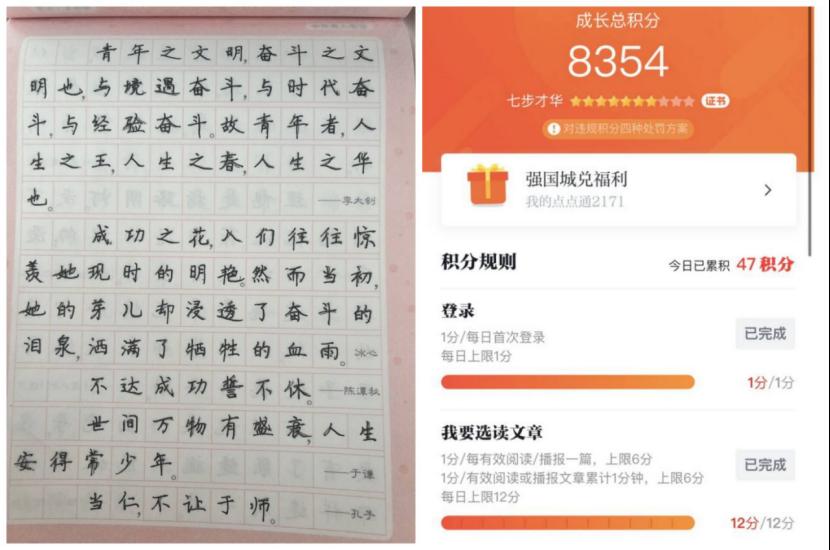 青年之文明,奋斗之文
明也,与境遇奋斗,与时代奋
斗,与经验奋斗。故青年者,人
生之王,人生之春,人生之华
也。 ——李大钊
成功之花,人们往往惊
羡她现时的明艳。然而当初,
她的芽儿却浸透了奋斗的
泪泉,洒满了牺牲的血雨。冰心
不达成功誓不休。——陈潭秋
世间万物有盛衰,人生
安得常少年。 ——于谦
当仁,不让于师。——孔子
成长总积分
8354
七步才华 证书
对违规积分四种处罚方案
强国城兑福利
我的点点通2171
积分规则 今日已累积 47 积分
登录
1分/每日首次登录
每日上限1分
已完成
1分/1分
我要选读文章
1分/每有效阅读/播报一篇,上限6分
1分/有效阅读或播报文章累计1分钟,上限6分
每日上限12分
已完成
12分/12分